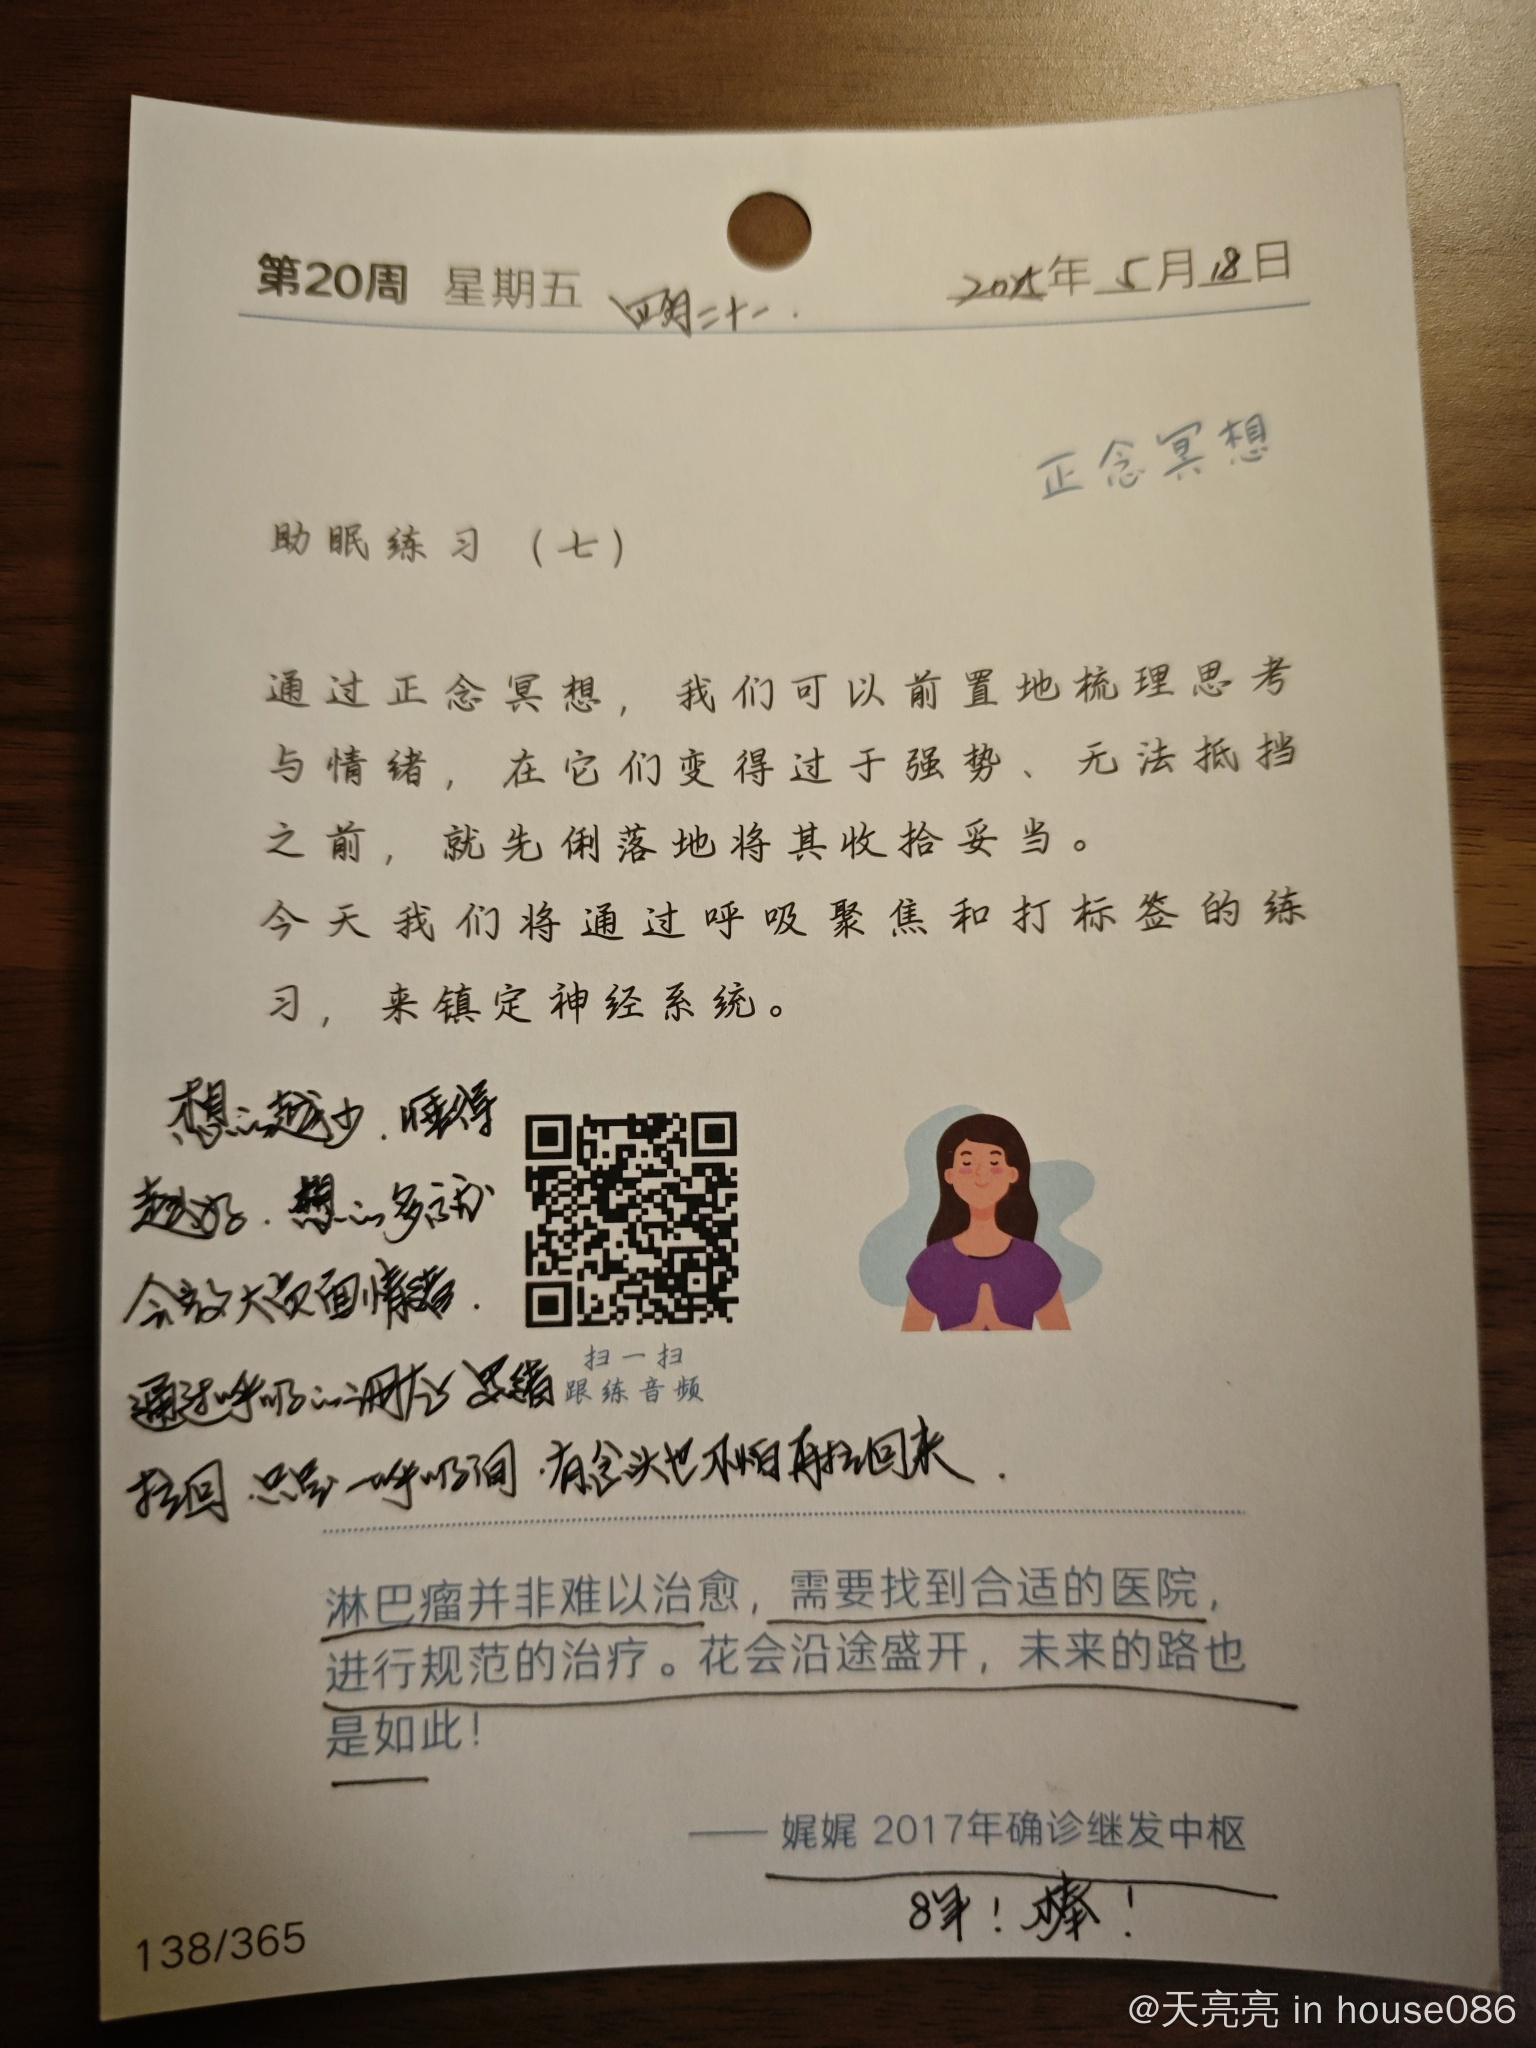 第20周 星期五 四月二十一. 2025年 5月18日
正念冥想
助眠练习（七）
通过正念冥想，我们可以前置地梳理思考
与情绪，在它们变得过于强势、无法抵挡
之前，就先俐落地将其收拾妥当。
今天我们将通过呼吸聚焦和打标签的练
习，来镇定神经系统。
想的越少.睡得
越好.想的多
会放大负面情绪.
通过呼吸的调 思绪
拉回 只是一呼吸间.有念头也不怕再拉回来.
扫一扫
跟练音频
淋巴瘤并非难以治愈，需要找到合适的医院，
进行规范的治疗。花会沿途盛开，未来的路也
是如此！
—— 娓娓 2017年确诊继发中枢
8年！棒！
138/365
@天亮亮 in house086